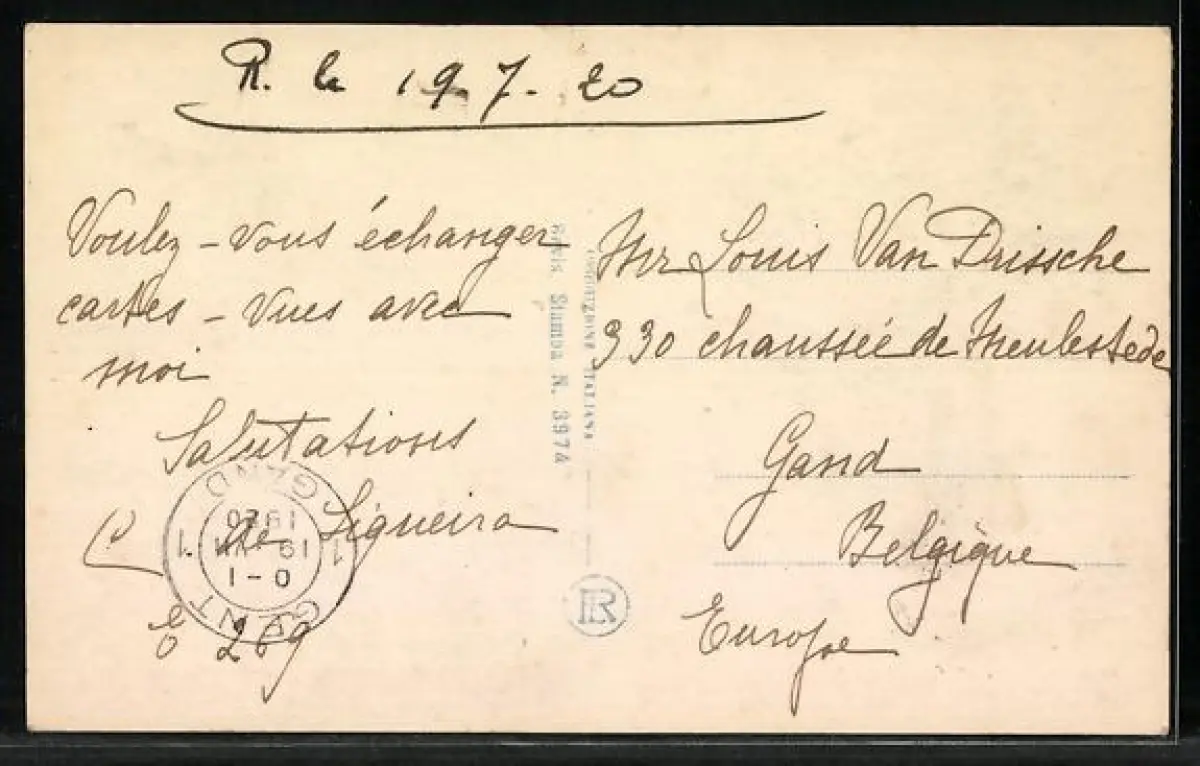 R. le 19-7-20
Voulez-vous échanger
cartes-vues avec
moi
Salutations
C. de Siqueira
269
Mr Louis Van Drissche
330 chaussée de Meulestede
Gand
Belgique
Europe
Revis. Stampa N. 3974
ITALIANA
GENT 1 GAND 1
19
1920
0-1
R